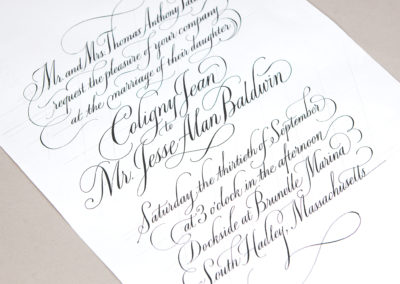 Mr. and Mrs. Thomas Anthony
request the pleasure of your company
at the marriage of their daughter
Coligny Jean
to
Mr. Jesse Alan Baldwin
Saturday, the thirtieth of September
at 3 o'clock in the afternoon
Dockside at Brunelle Marina
South Hadley, Massachusetts